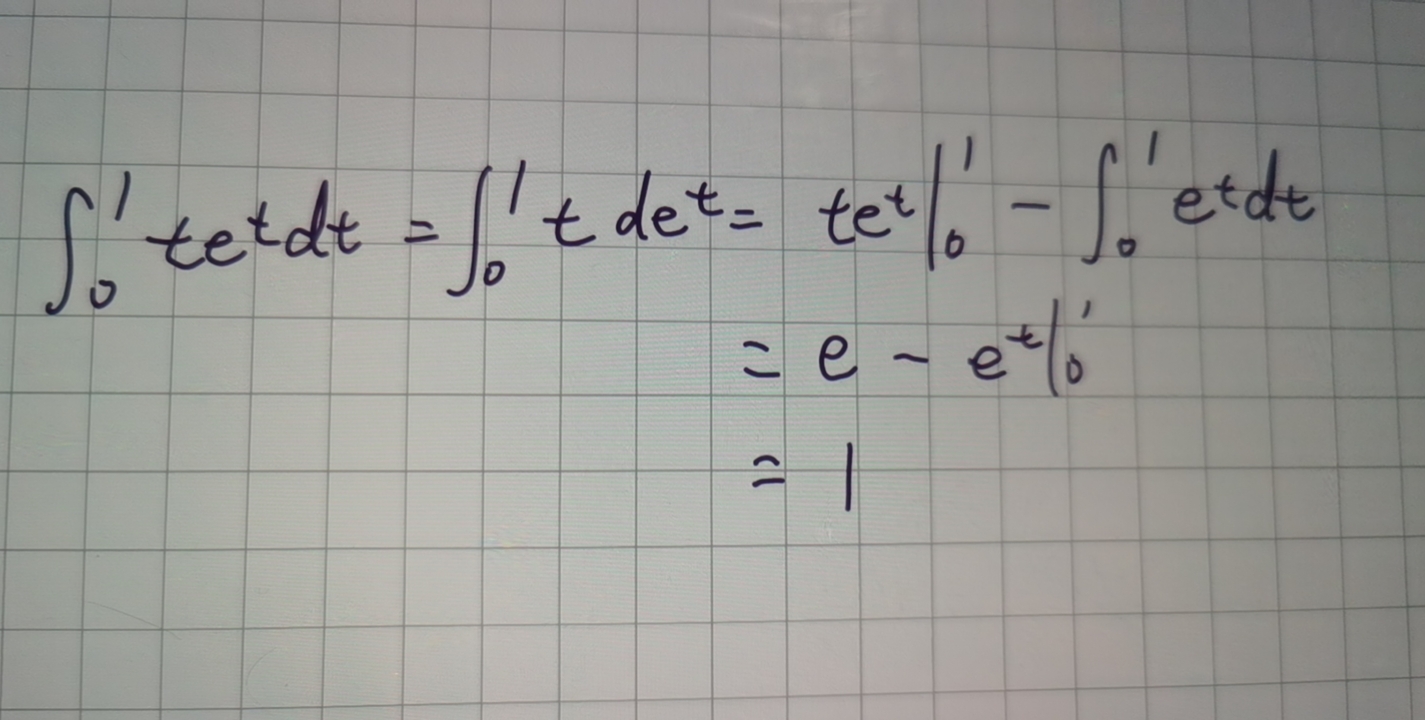 ∫₀¹ te^t dt = ∫₀¹ t de^t = te^t |₀¹ − ∫₀¹ e^t dt
= e − e^t |₀¹
= 1